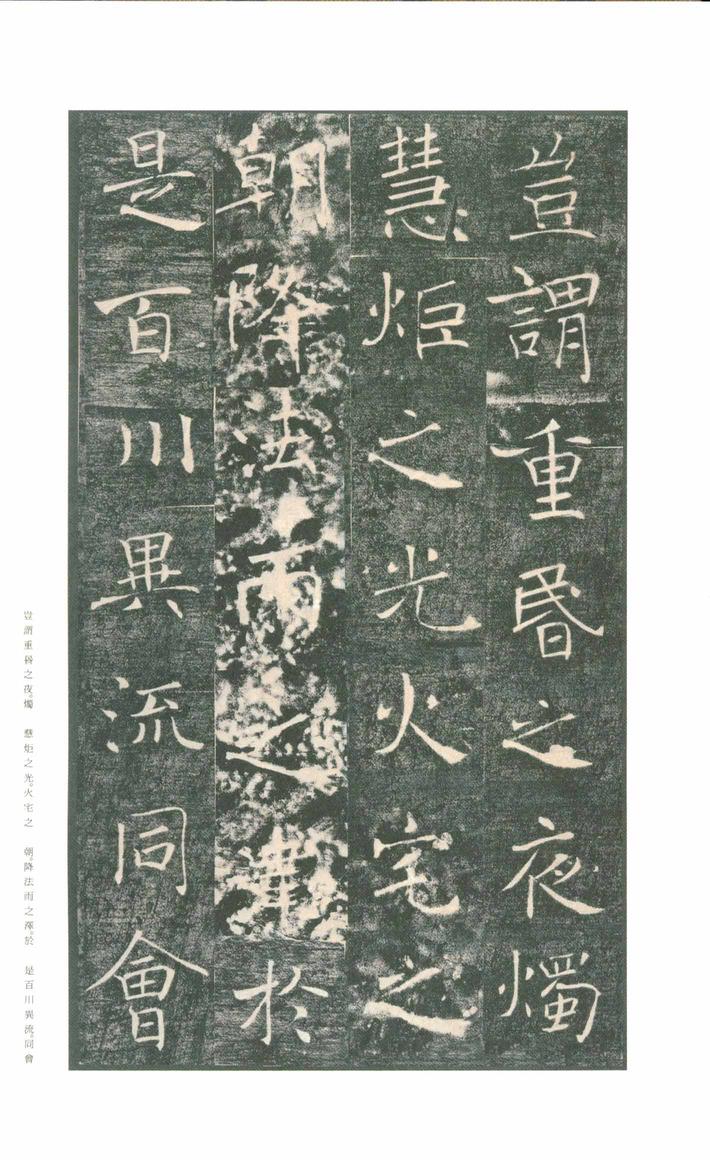 豈謂重昬之夜燭
慧炬之光火宅之
朝降法雨之澤於
是百川異流同會
豈謂重昬之夜。燭　慧炬之光。火宅之　朝。降法雨之澤。於　是百川異流。同會